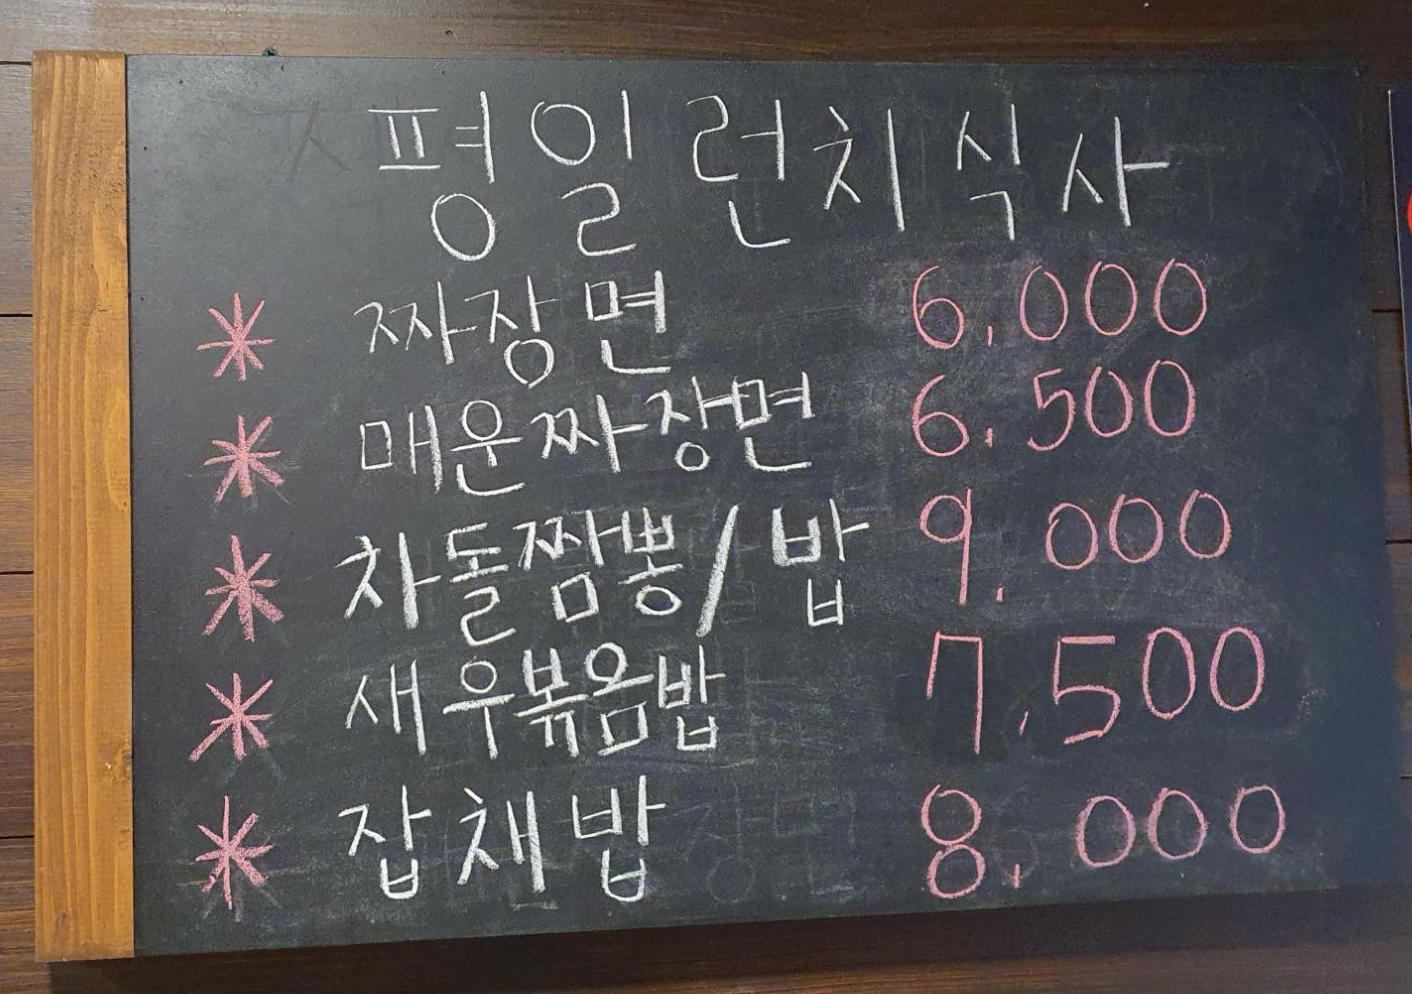 평일런치식사
* 짜장면 6,000
* 매운짜장면 6,500
* 차돌짬뽕/밥 9,000
* 새우볶음밥 7,500
* 잡채밥 8,000